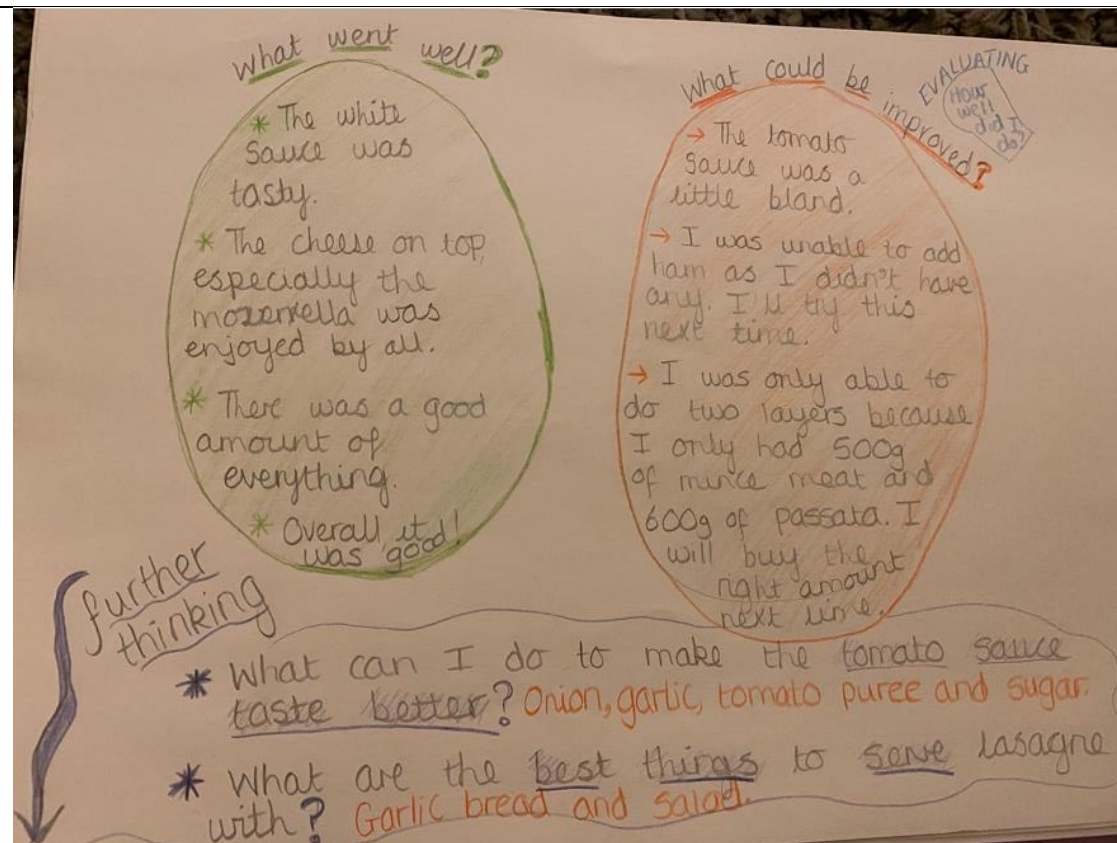 What went well?
* The white
sauce was
tasty.
* The cheese on top,
especially the
mozerrella was
enjoyed by all.
* There was a good
amount of
everything.
* Overall, it
was good!
What could be improved?
EVALUATING
How
well
did I
do?
→ The tomato
sauce was a
little bland.
→ I was unable to add
ham as I didn't have
any. I'll try this
next time.
→ I was only able to
do two layers because
I only had 500g
of mince meat and
600g of passata. I
will buy the
right amount
next time.
further
thinking
* What can I do to make the tomato sauce
taste better? Onion, garlic, tomato puree and sugar.
* What are the best things to serve lasagne
with? Garlic bread and salad.